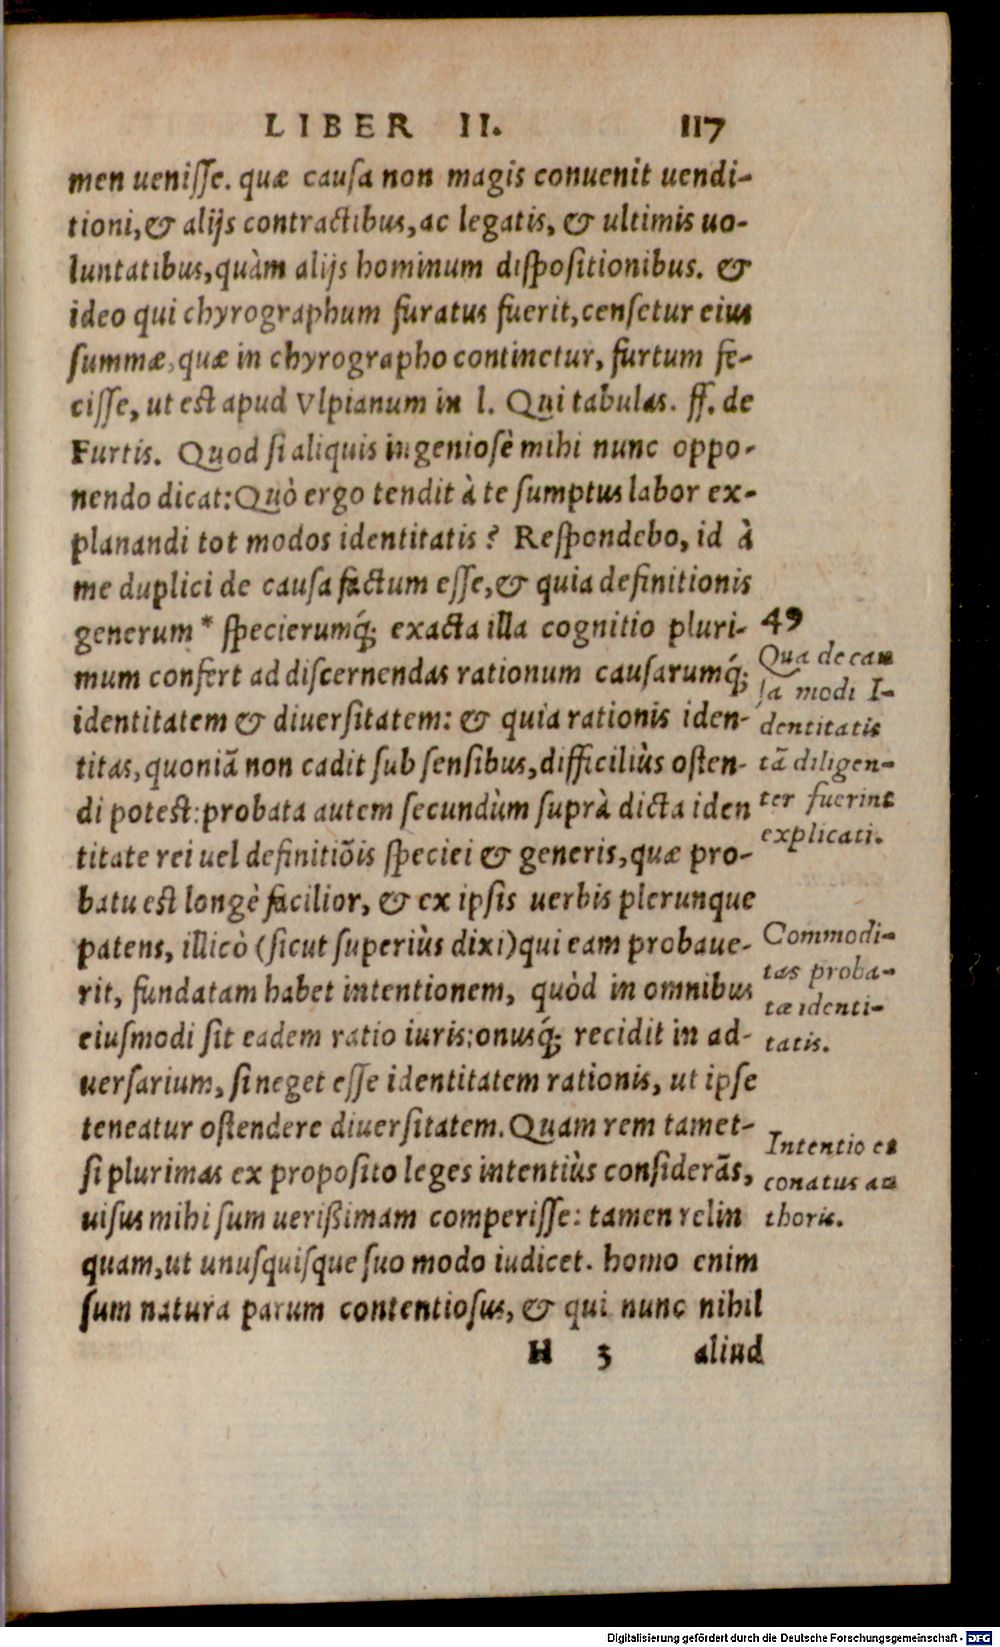 LIBER II. 117
men uenisse. quæ causa non magis conuenit uendi-
tioni, & alijs contractibus, ac legatis, & ultimis uo-
luntatibus, quàm alijs hominum dispositionibus. &
ideo qui chyrographum furatus fuerit, censetur eius
summæ, quæ in chyrographo continetur, furtum fe-
cisse, ut est apud Vlpianum in l. Qui tabulas. ff. de
Furtis. Quod si aliquis ingeniosè mihi nunc oppo-
nendo dicat: Quò ergo tendit à te sumptus labor ex-
planandi tot modos identitatis? Respondebo, id à
me duplici de causa factum esse, & quia definitionis
generum * specierumq́; exacta illa cognitio pluri-
mum confert ad discernendas rationum causarumq́;
identitatem & diuersitatem: & quia rationis iden-
titas, quoniã non cadit sub sensibus, difficiliùs osten-
di potest: probata autem secundùm suprà dicta iden
titate rei uel definitiõis speciei & generis, quæ pro-
batu est longè facilior, & ex ipsis uerbis plerunque
patens, illicò (sicut superiùs dixi) qui eam probaue-
rit, fundatam habet intentionem, quòd in omnibus
eiusmodi sit eadem ratio iuris: onusq́; recidit in ad-
uersarium, si neget esse identitatem rationis, ut ipse
teneatur ostendere diuersitatem. Quam rem tamet-
si plurimas ex proposito leges intentiùs considerãs,
uisus mihi sum uerißimam comperisse: tamen relin
quam, ut unusquisque suo modo iudicet. homo enim
sum natura parum contentiosus, & qui nunc nihil
H 3 aliud
49
Qua de cau
sa modi I-
dentitatis
tã diligen-
ter fuerint
explicati.
Commodi-
tas proba-
tæ identi-
tatis.
Intentio et
conatus au
thoris.
Digitalisierung gefördert durch die Deutsche Forschungsgemeinschaft - DFG